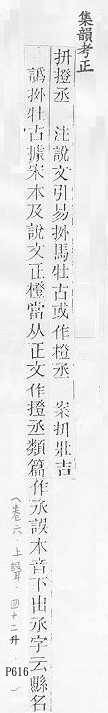 集韻考正
拼撜丞　注說文引易拼馬牡古或作撜丞　案拼壯吉
譌拼牡古據宋本及說文正橙當从正文作撜丞類篇作丞誤木音下出丞字云縣名
（卷六．上聲．四十二拯
P616